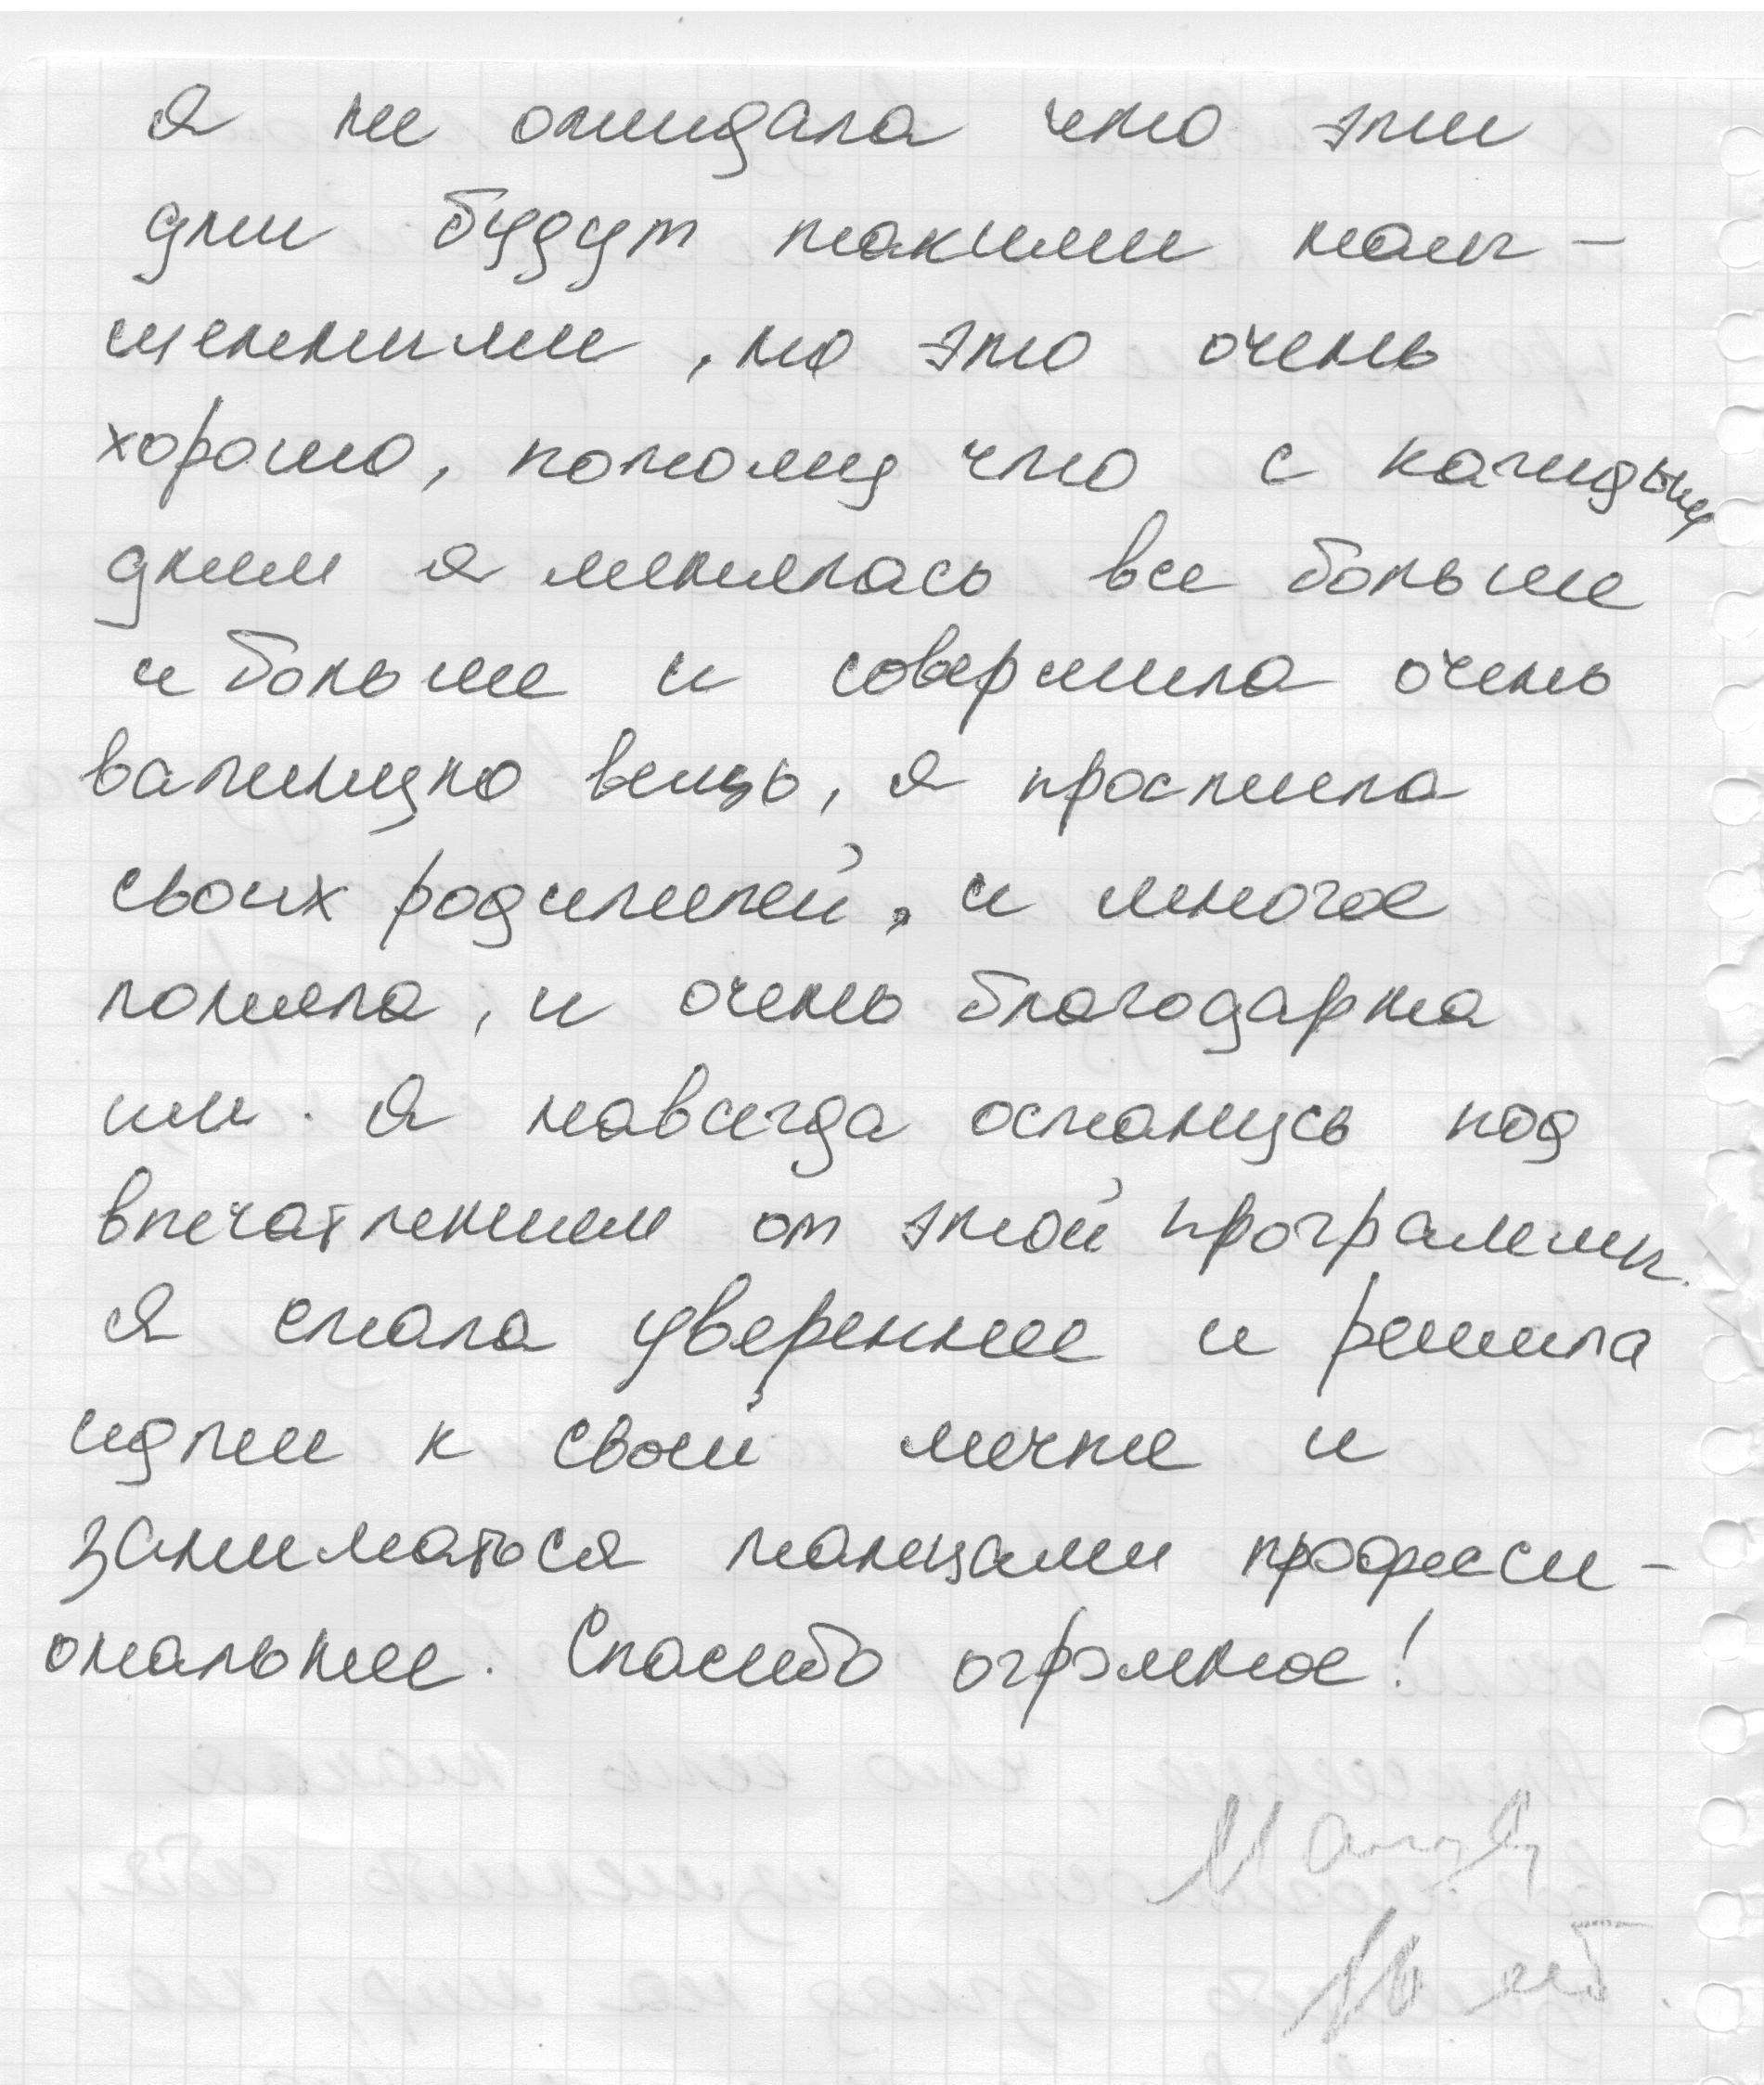 Я не ожидала что эти
дни будут такими насы-
щенными, но это очень
хорошо, потому что с каждым
днем я менялась все больше
и больше и совершила очень
важную вещь, я простила
своих родителей, и многое
поняла, и очень благодарна
им. Я навсегда останусь под
впечатлением от этой программы.
Я стала увереннее и решила
идти к своей мечте и
заниматься танцами професси-
ональнее. Спасибо огромное!
16 лет.